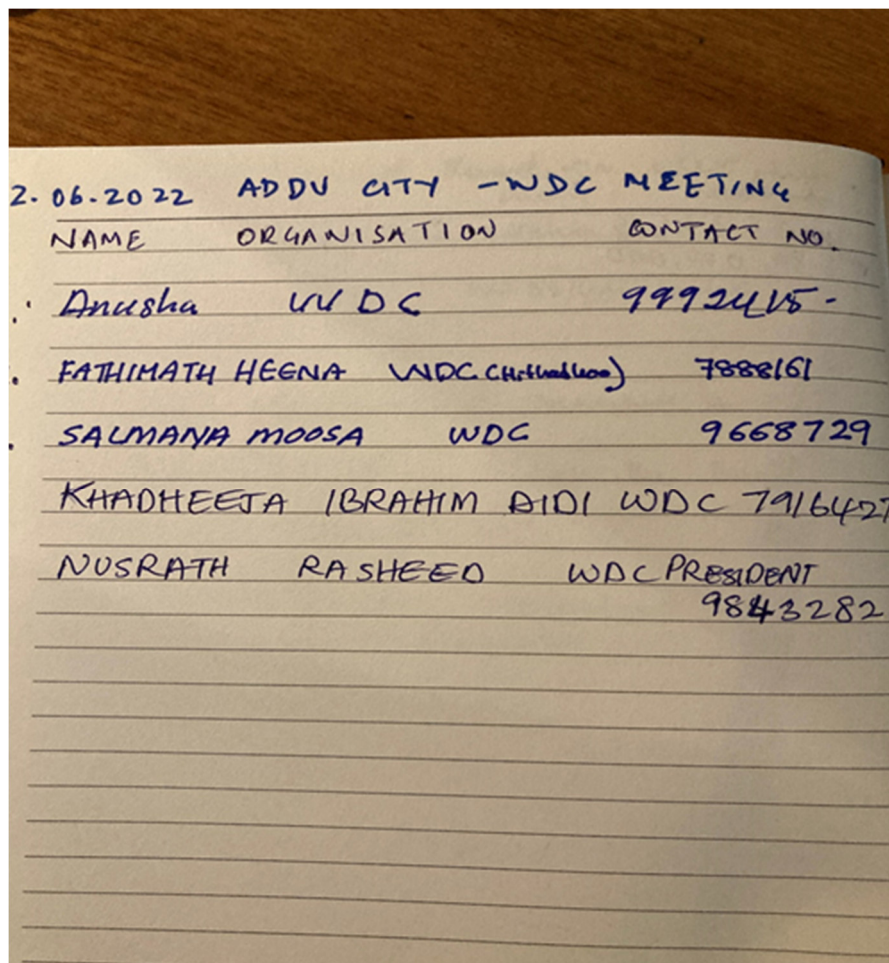 2.06.2022 ADDU CITY - WDC MEETING
NAME ORGANISATION CONTACT NO.
Anusha WDC 9992415-
FATHIMATH HEENA WDC (Hithadhoo) 7888161
SALMANA MOOSA WDC 9668729
KHADHEEJA IBRAHIM DIDI WDC 7916427
NUSRATH RASHEED WDC PRESIDENT
9843282